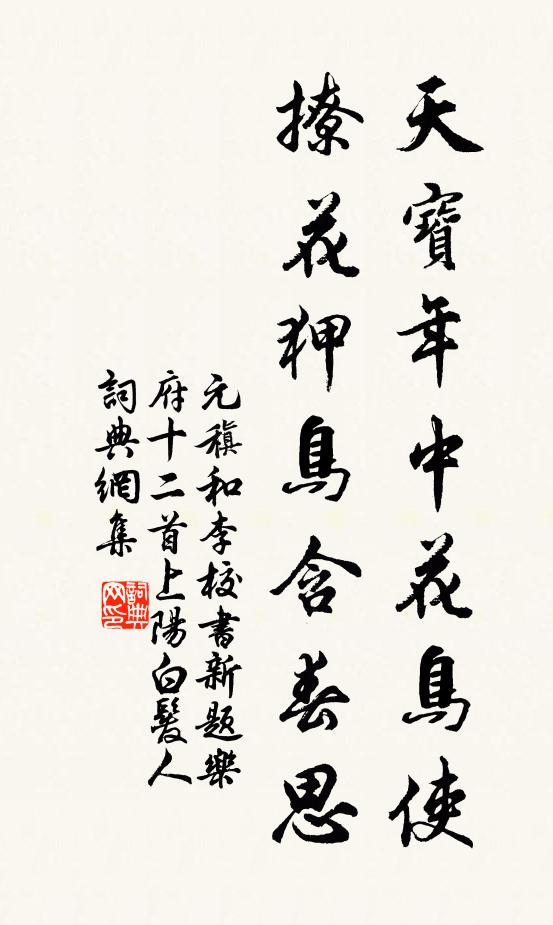 天寶年中花鳥使
撩花狎鳥含春思
元稹和李校書新題樂
府十二首上陽白髮人
詞典網集
詞典
网印